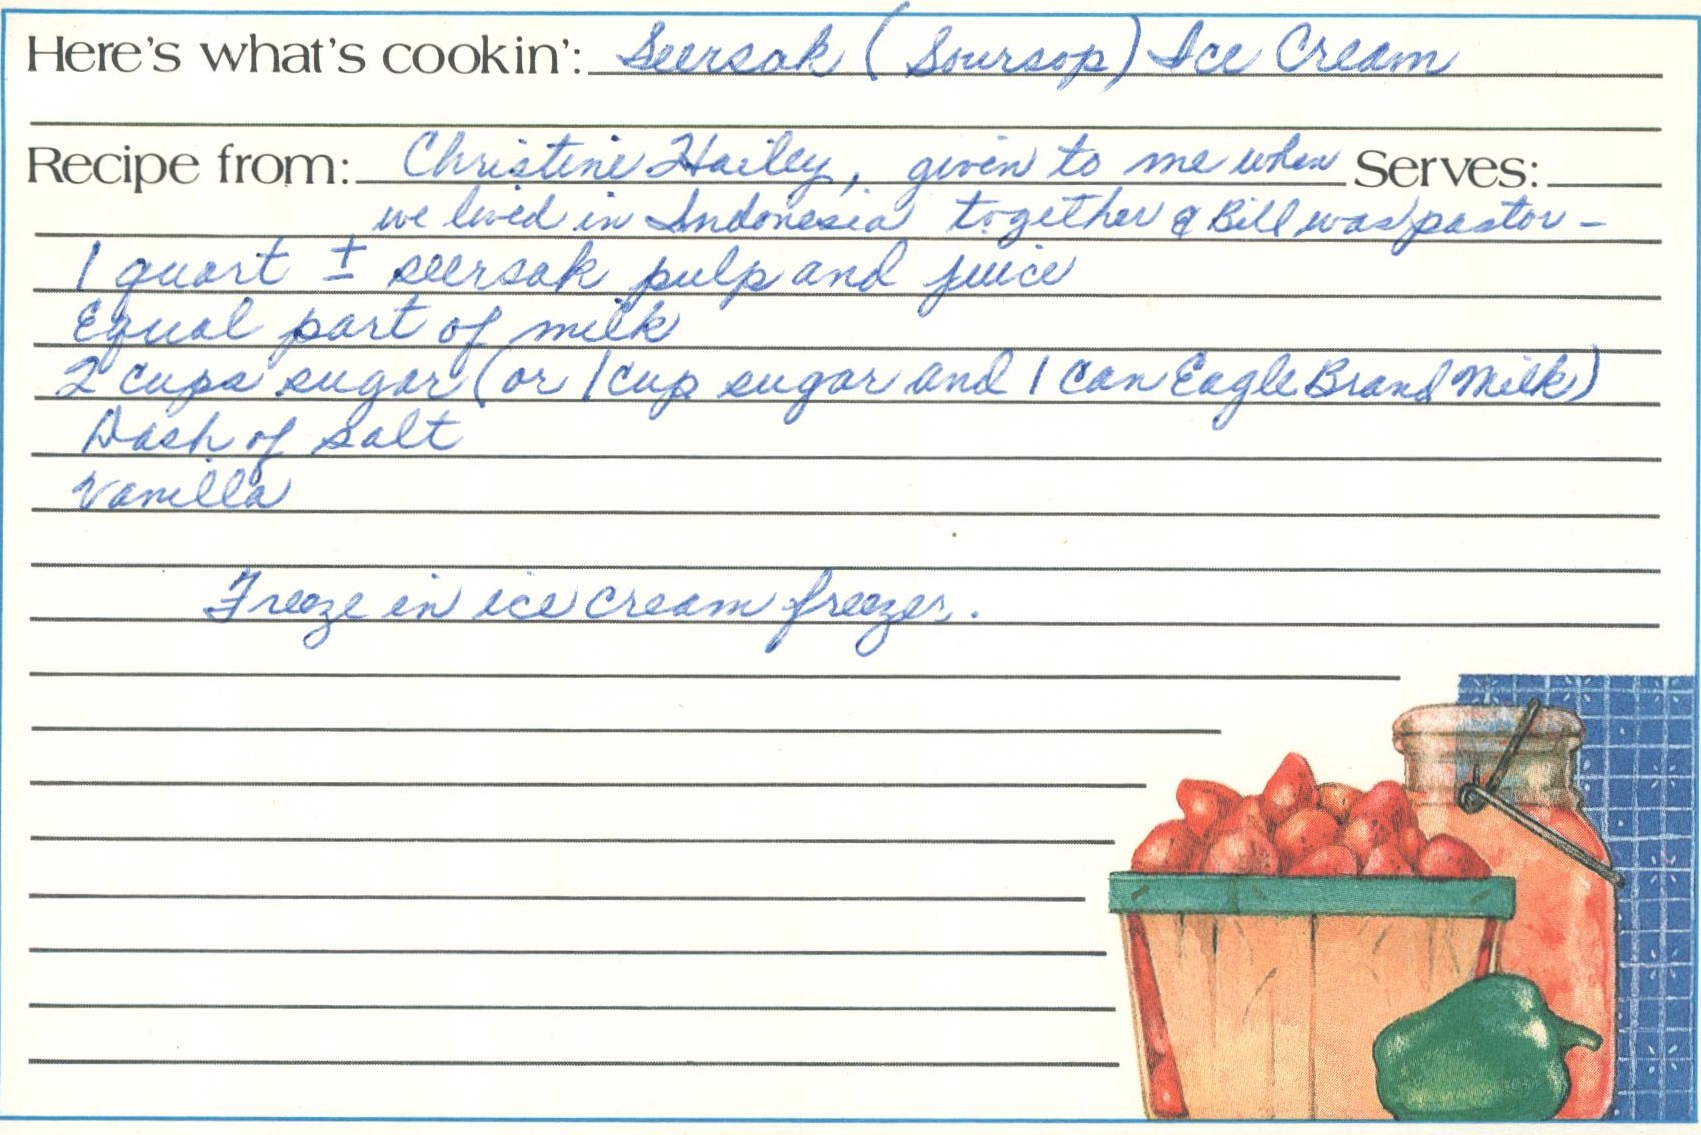 Here's what's cookin': Seersak (Soursop) Ice Cream
Recipe from: Christine Hailey, given to me when Serves:
we lived in Indonesia together & Bill was pastor -
1 quart ± seersak pulp and juice
Equal part of milk
2 cups sugar (or 1 cup sugar and 1 can Eagle Brand Milk)
Dash of salt
Vanilla
Freeze in ice cream freezer.